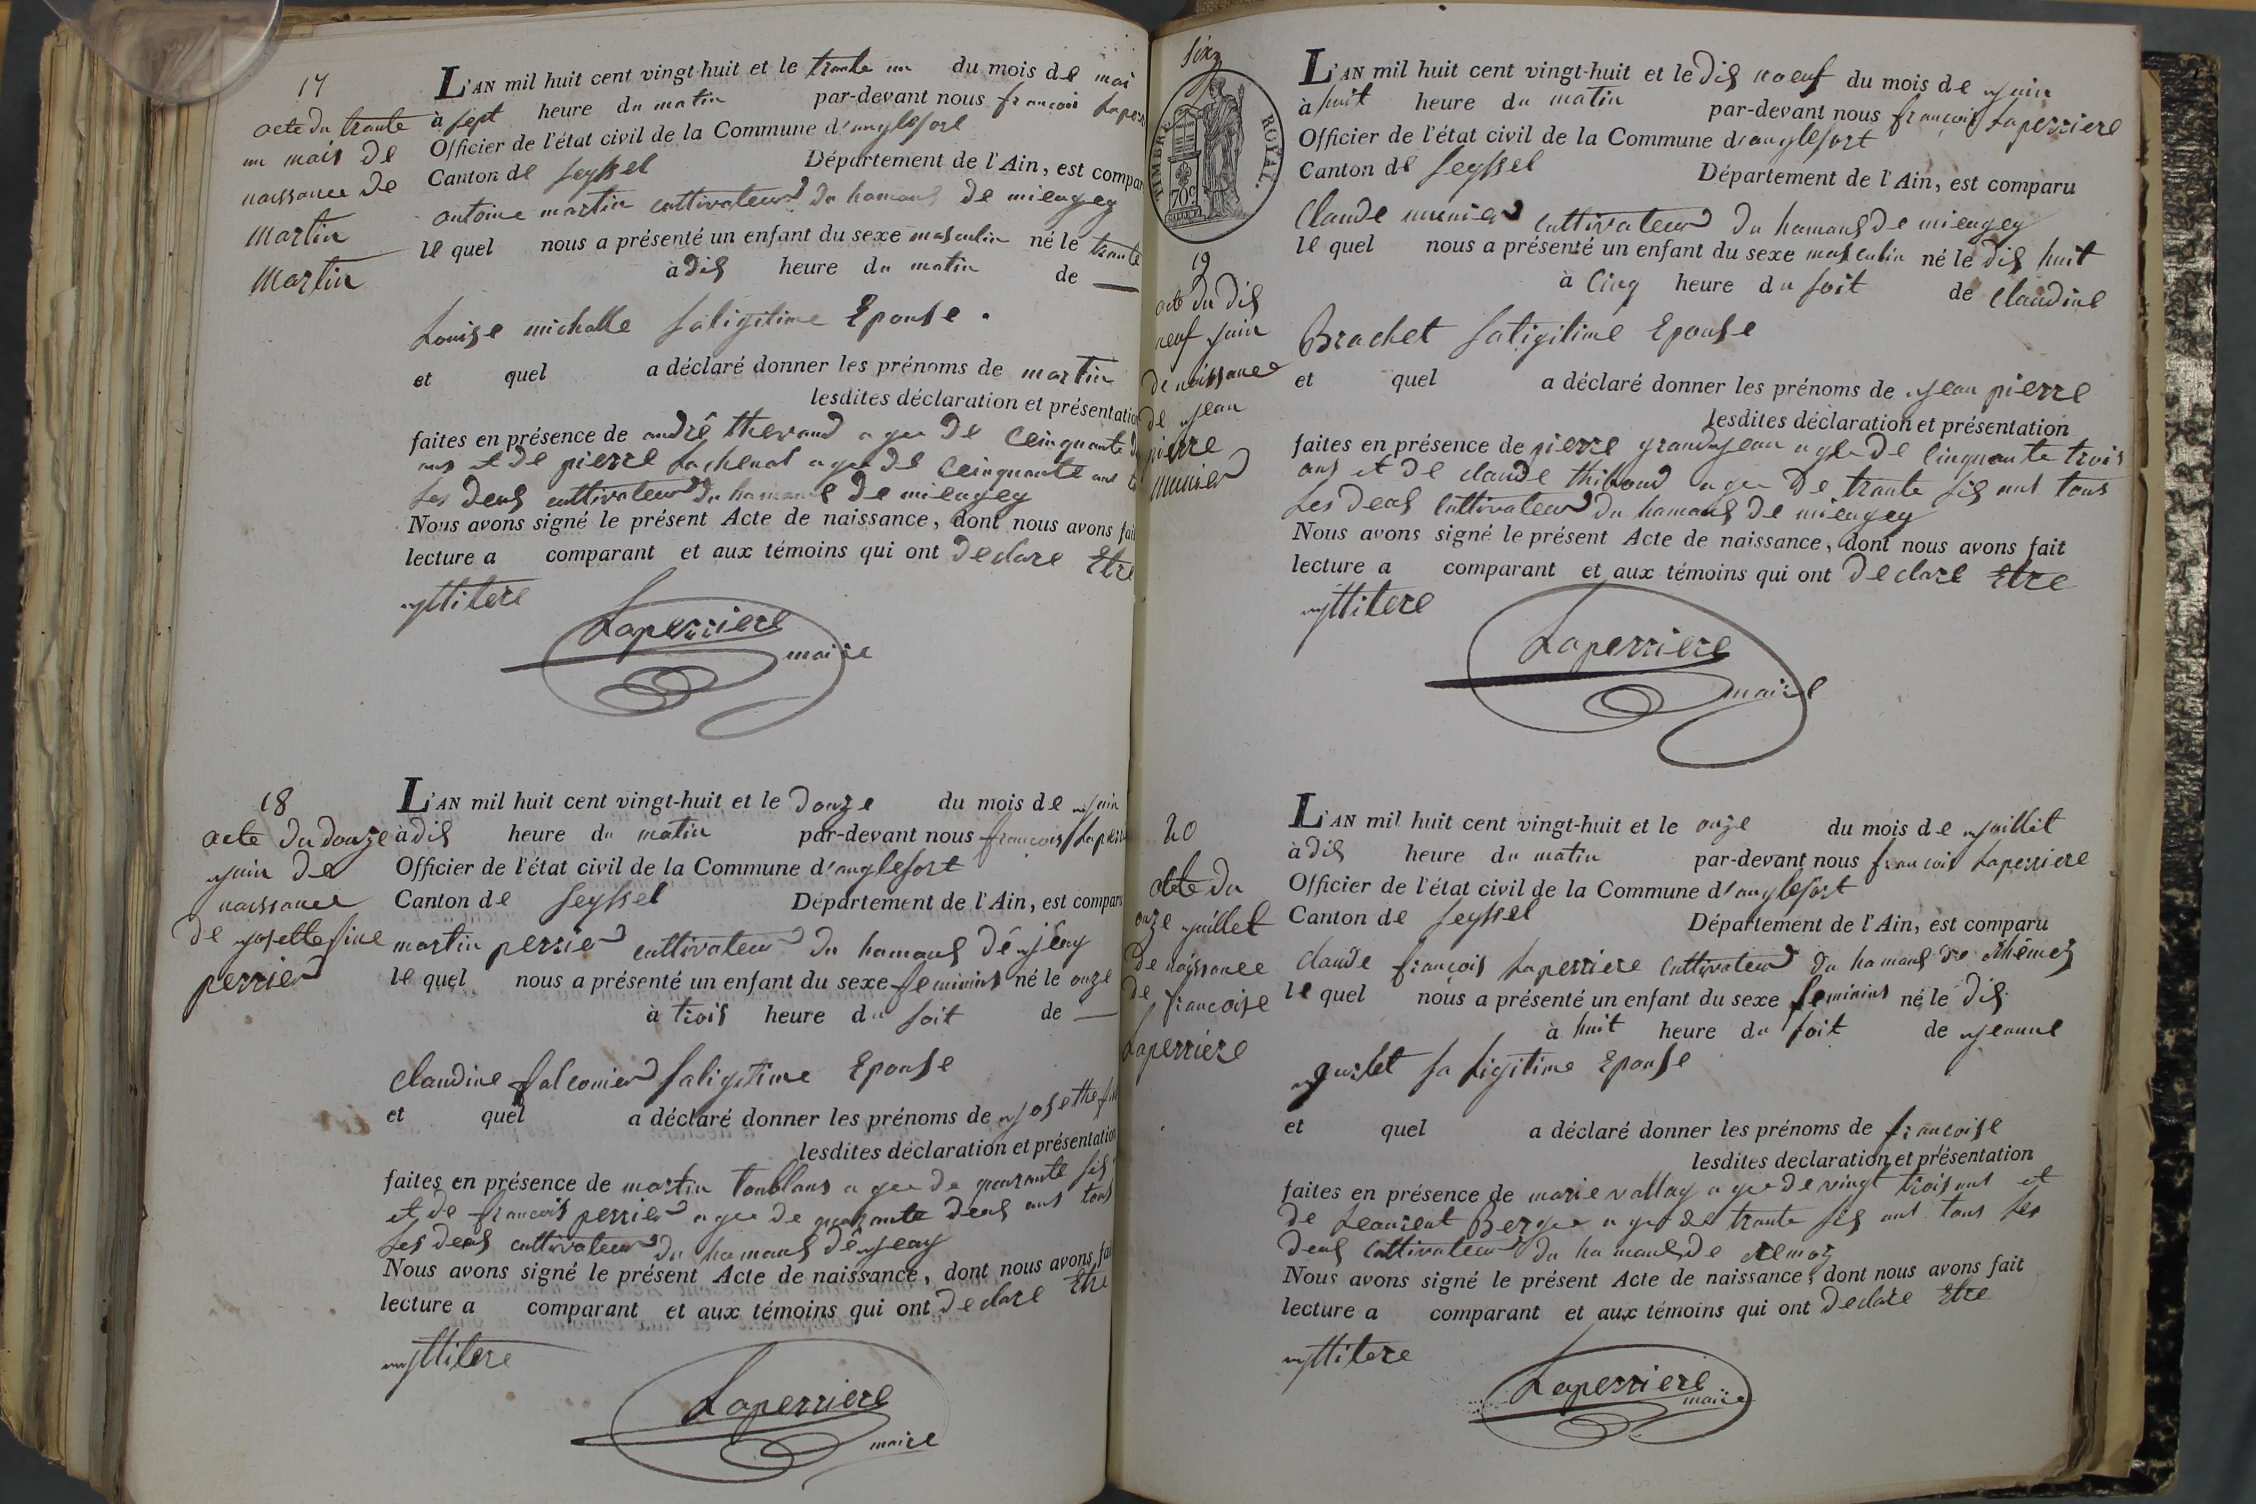 17
acte du trante
un mais de
naissance de
martin
martin
L'AN mil huit cent vingt-huit et le trante un du mois de mai
à sept heure du matin par-devant nous francois Laperr
Officier de l'état civil de la Commune d'anglefort
Canton de seyssel Département de l'Ain, est compar
antoine martin cultivateur du hamaus de miengey
le quel nous a présenté un enfant du sexe masculin né le trante
à dis heure du matin de —
Louise michalle saligitime Epouse .
et quel a déclaré donner les prénoms de martin
lesdites déclaration et présentation
faites en présence de andrê thevand agee de Ceinquante
ans et de pierre Lachenal agee de Ceinquante ans
Les deus cultivateur du hamaus de miengey
Nous avons signé le présent Acte de naissance, dont nous avons fait
lecture a comparant et aux témoins qui ont declare Etre
yllitere
Laperriere
maire
18
acte du douze
juin de
naissance
de josettefine
perrier
L'AN mil huit cent vingt-huit et le douze du mois de juin
à dis heure du matin par-devant nous francois Laperr
Officier de l'état civil de la Commune d'anglefort
Canton de seyssel Département de l'Ain, est compar
martin perrier cultivateur du hamaus dê jêay
le quel nous a présenté un enfant du sexe feminins né le onze
à trois heure du soit de —
Claudine falconier saligitime Epouse
et quel a déclaré donner les prénoms de josethefin
lesdites déclaration et présentation
faites en présence de martin tonblans agee de quarante sis
et de francois perrier agee de quarante deus ans tous
Les deus cultivateur du hamaus dê jeay
Nous avons signé le présent Acte de naissance, dont nous avons fait
lecture a comparant et aux témoins qui ont declare Etre
yllitere
Laperriere
maire
sixz
TIMBRE ROYAL.
70c.
19
acte du dis
neuf juin
de naissance
de jean
pierre
munier
L'AN mil huit cent vingt-huit et le dis noeuf du mois de juin
à huit heure du matin par-devant nous francois Laperriere
Officier de l'état civil de la Commune d'anglefort
Canton de seyssel Département de l'Ain, est comparu
Claude munier cultivateur du hamaus de miengey
le quel nous a présenté un enfant du sexe masculin né le dis huit
à Cinq heure du soit de Claudine
Brachet saligitime Epouse
et quel a déclaré donner les prénoms de jean pierre
lesdites déclaration et présentation
faites en présence de pierre grandjean agee de Cinquante trois
ans et de claude thiboud agee de trante sis ans tous
Les deus Cultivateur du hamaus de miengey
Nous avons signé le présent Acte de naissance, dont nous avons fait
lecture a comparant et aux témoins qui ont declare Etre
yllitere
Laperriere
maire
20
acte du
onze juillet
de naissance
de francoise
Laperriere
L'AN mil huit cent vingt-huit et le onze du mois de juillet
à dis heure du matin par-devant nous francois Laperriere
Officier de l'état civil de la Commune d'anglefort
Canton de seyssel Département de l'Ain, est comparu
claude francois Laperriere Cultivateur du hamaus de
le quel nous a présenté un enfant du sexe feminins né le dis
à huit heure du soit de jeanne
sa ligitime Epouse
et quel a déclaré donner les prénoms de francoise
lesdites declaration et présentation
faites en présence de marie vallay agee de vingt trois ans et
de Leaurent Berger agee de trante sis ans tous Les
deus Cultivateur du hamaus de
Nous avons signé le présent Acte de naissance, dont nous avons fait
lecture a comparant et aux témoins qui ont declare Etre
yllitere
Laperriere
maire